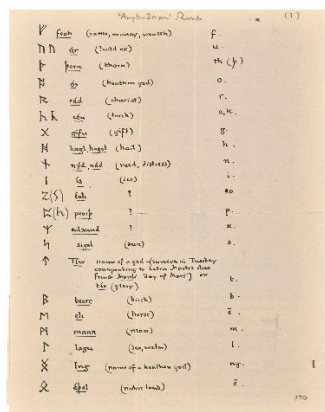 "Anglo-Saxon" Runes (1)
ᚠ feoh (cattle, money, wealth) f.
ᚢ úr (wild ox) u.
ᚦ þorn (thorn) th (þ)
ᚩ ós (heathen god) o.
ᚱ rád (chariot) r.
ᚳ cén (torch) c, k.
ᚷ gifu (gift) g.
ᚻ hægl, hagol (hail) h.
ᚾ nýd, néd (need, distress) n.
ᛁ ís (ice) i.
ᛇ (ᛢ) éoh ? eo
ᛈ peorþ ? p.
ᛉ eolxand ? x.
ᛋ sigel (sun) s.
ᛏ Tíw name of a god (survives in Tuesday
corresponding to Latin Martis dies
from Mars' 'day of Mars') or
tír (glory) t.
ᛒ beorc (birch) b.
ᛖ eh (horse) e.
ᛗ mann (man) m.
ᛚ lagu (sea, water) l.
ᛝ Ing (name of a heathen god) ng.
ᛟ éþel (native land) é.